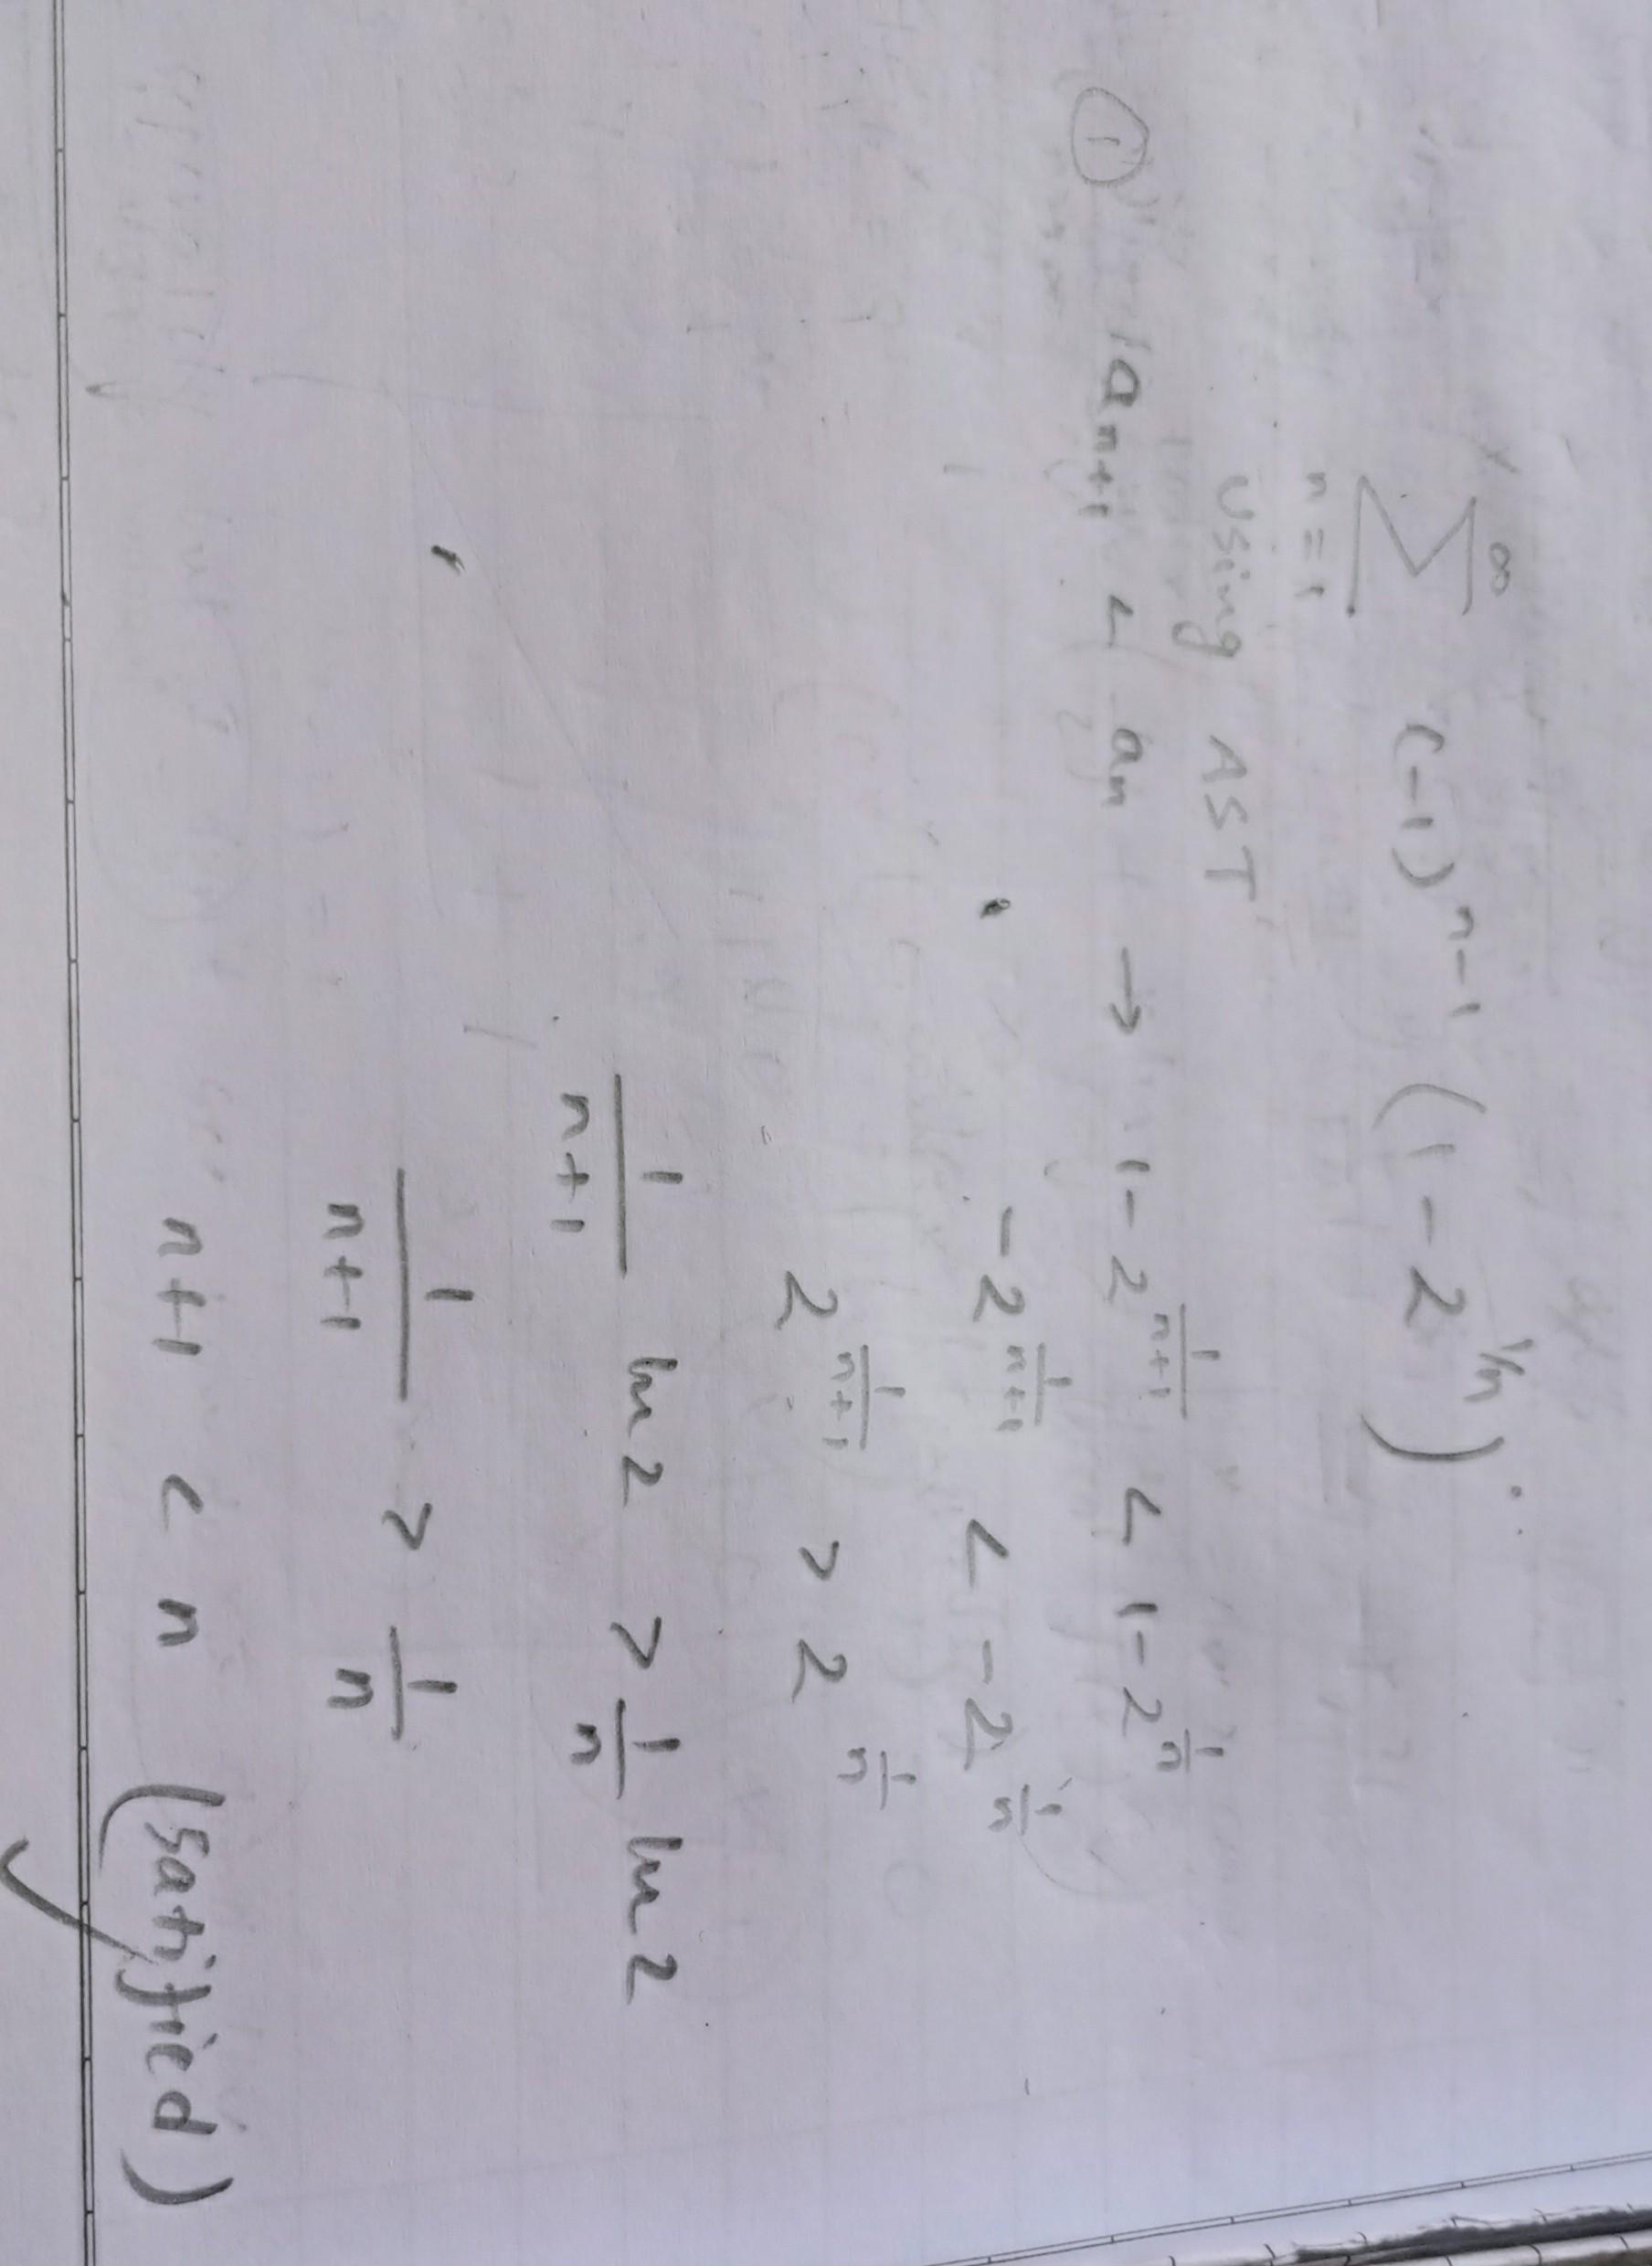 ∞
∑ (-1)^{n-1} (1 - 2^{1/n})
n = 1
Using AST
① a_{n+1} < a_n → 1 - 2^{\frac{1}{n+1}} < 1 - 2^{\frac{1}{n}}
-2^{\frac{1}{n+1}} < -2^{\frac{1}{n}}
2^{\frac{1}{n+1}} > 2^{\frac{1}{n}}
\frac{1}{n+1} ln 2 > \frac{1}{n} ln 2
\frac{1}{n+1} > \frac{1}{n}
n+1 < n (satified)